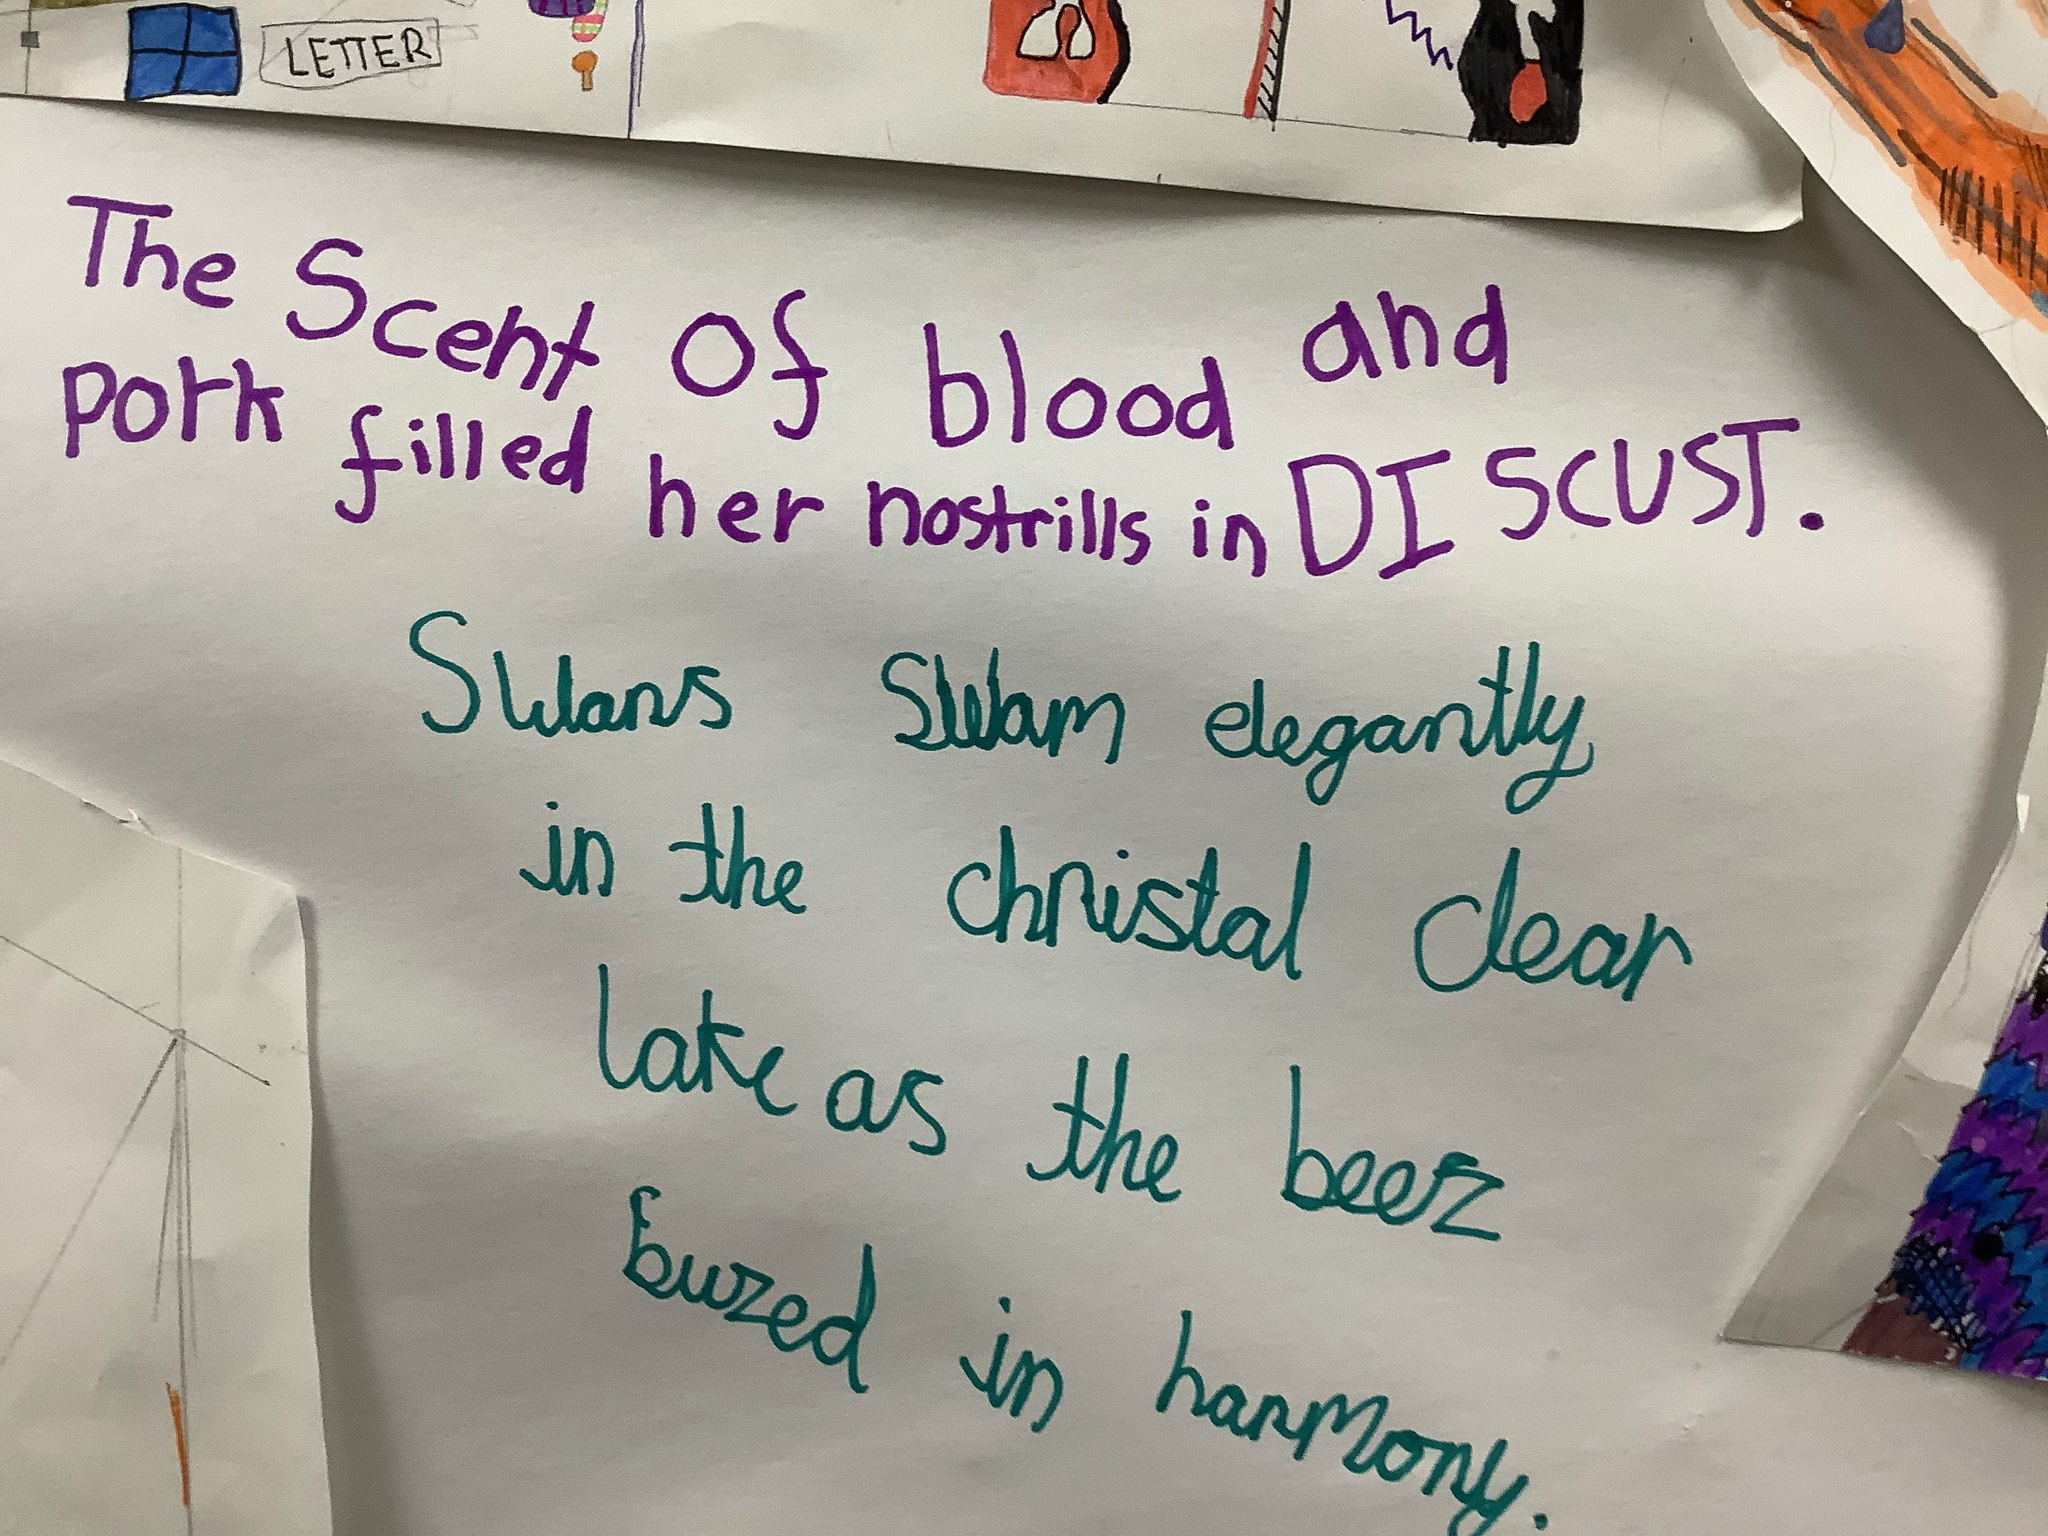 LETTER
The Scent Of blood and
pork filled her nostrills in DISCUST.
Swans Swam elegantly
in the christal clear
lake as the beez
buzed in harmony.